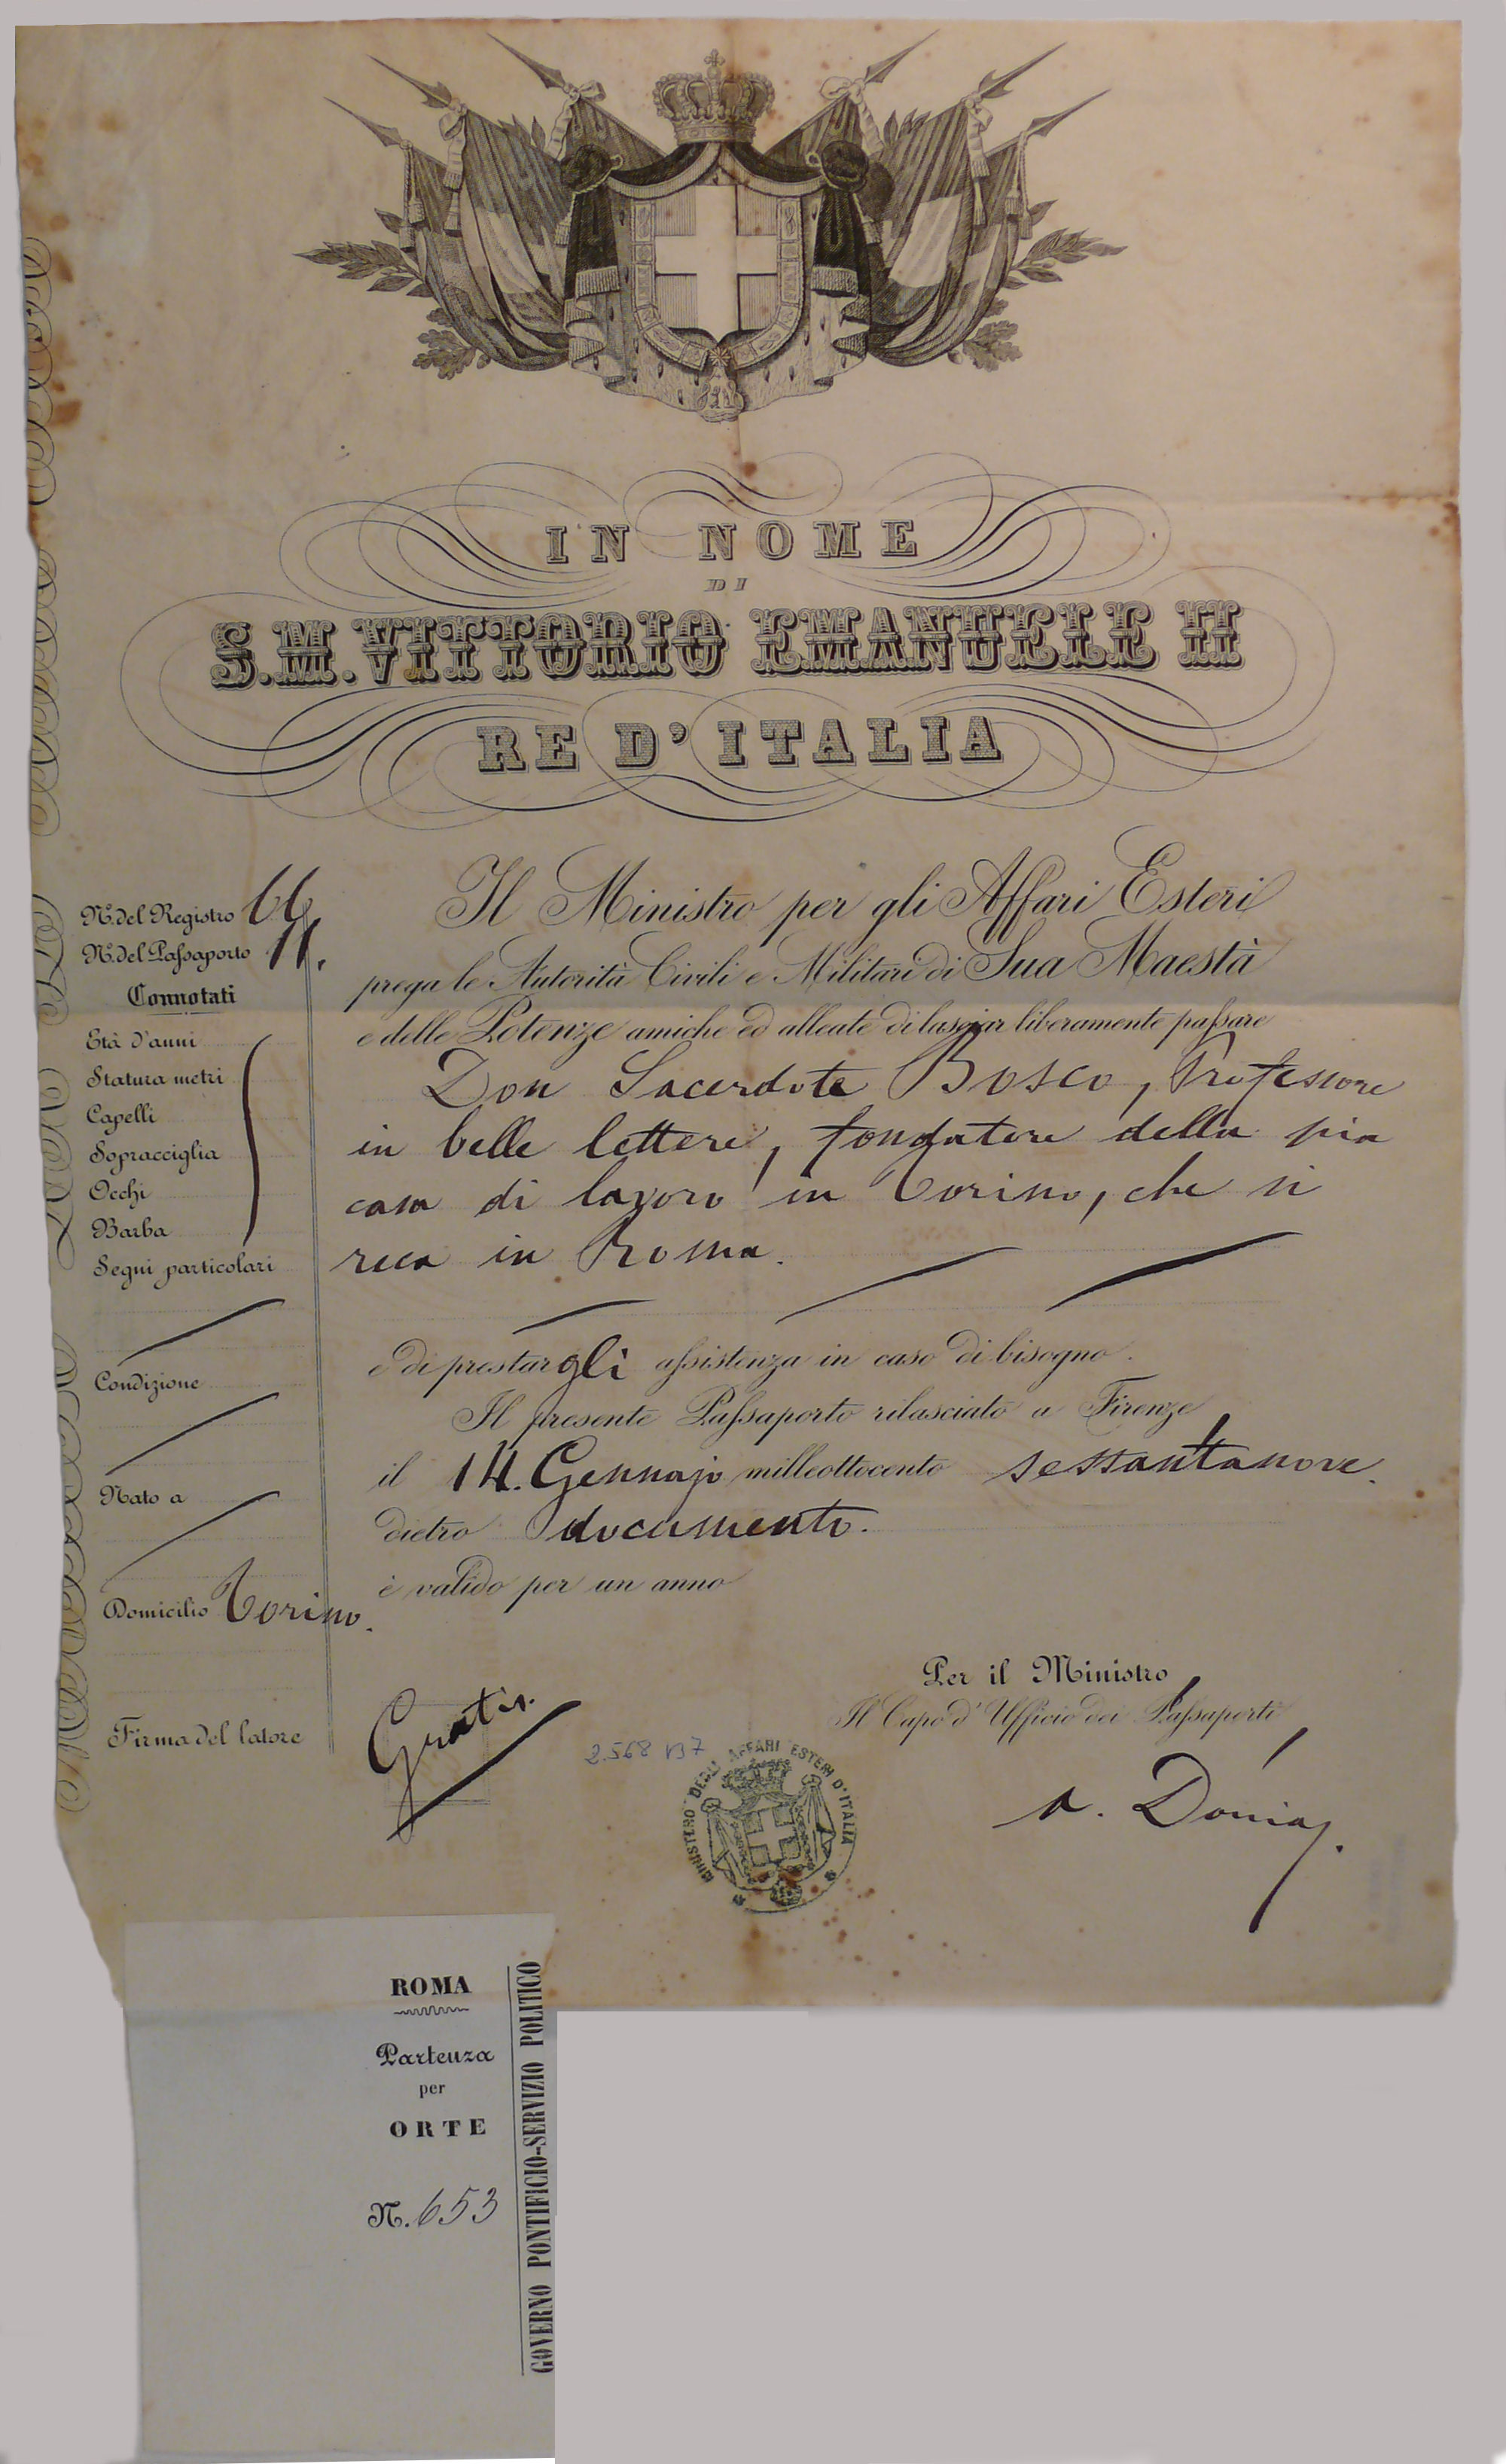 IN NOME
DI
S.M. VITTORIO EMANUELE II
RE D'ITALIA
N.º del Registro 66.
N.º del Passaporto 11.
Connotati
Età d'anni
Statura metri
Capelli
Sopracciglia
Occhi
Barba
Segni particolari
Condizione
Nato a
Domicilio Torino.
Firma del latore
Il Ministro per gli Affari Esteri
prega le Autorità Civili e Militari di Sua Maestà
e delle Potenze amiche ed alleate di lasciar liberamente passare
Don Sacerdote Bosco, Professore
in belle lettere, fondatore della pia
casa di lavoro in Torino, che si
reca in Roma.
e di prestargli assistenza in caso di bisogno.
Il presente Passaporto rilasciato a Firenze
il 14. Gennajo milleottocento sessantanove.
dietro documento.
è valido per un anno
Gratis.
Per il Ministro
Il Capo d'Ufficio dei Passaporti
2.568 B7
MINISTERO DEGLI AFFARI ESTERI D'ITALIA
ROMA
Partenza
per
ORTE
N. 653
GOVERNO PONTIFICIO-SERVIZIO POLITICO